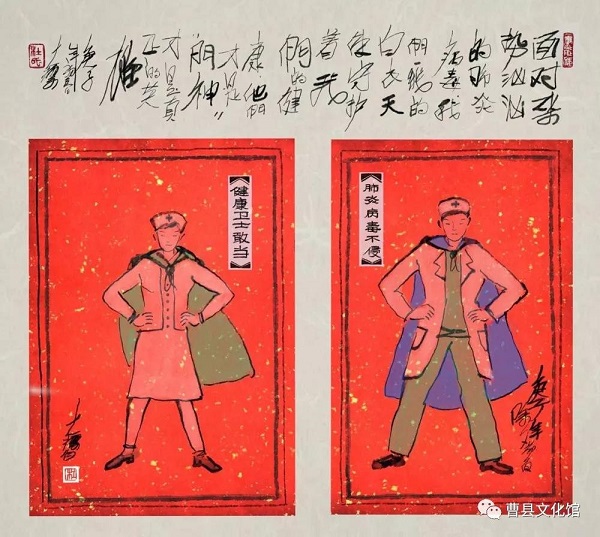 面对来
势汹汹
的肺炎
病毒我
们的
白衣天
使守护
着我
們的健
康他們
才是"
門神"
才是真
正的英
雄
庚子
肺炎病毒不侵
健康卫士敢当
曹县文化馆